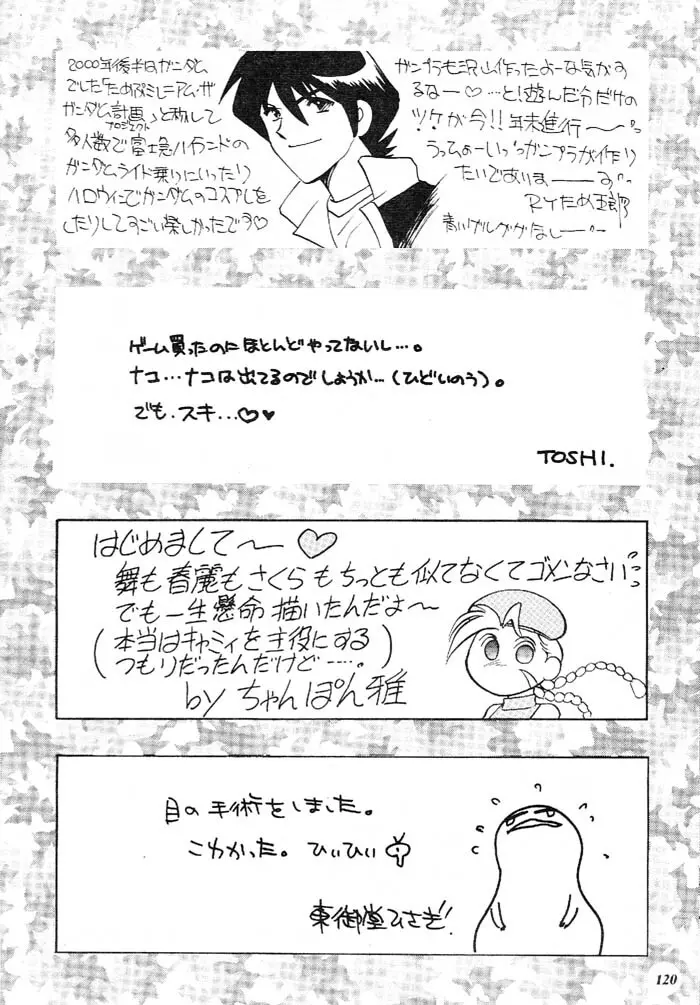 2000年後半はガンダム
でした「ためGミレニアム・ザ・
ガンダム計画」と称して
プロジェクト
多人数で富士急ハイランドの
ガンダムライド乗りにいったり
ハロウィンでガンダムのコスプレをし
したりしてすごい楽しかったです♡
ガンプラも沢山作ったよーな気がす
るなー♡…とり遊んだ分だけの
ツケが今!!年末進行〜
うってぁーいっガンプラが作り
たいでありまーーす
RYため五郎
青いグルググなしー
ゲーム買ったのにほとんどやってないし…。
ナコ…ナコは出てるのでしょうか…(ひどいのう)。
でも、スキ…♡♥
TOSHI.
はじめまして〜♡
舞も春麗もさくらもちっとも似てなくてゴメンなさい
でも一生懸命描いたんだよ〜
(本当はキャミィを主役にする
つもりだったんだけど……。)
by ちゃんぽん雅
目の手術をしました。
こわかった。ひぃひぃ
東御堂ひさぎ!
120